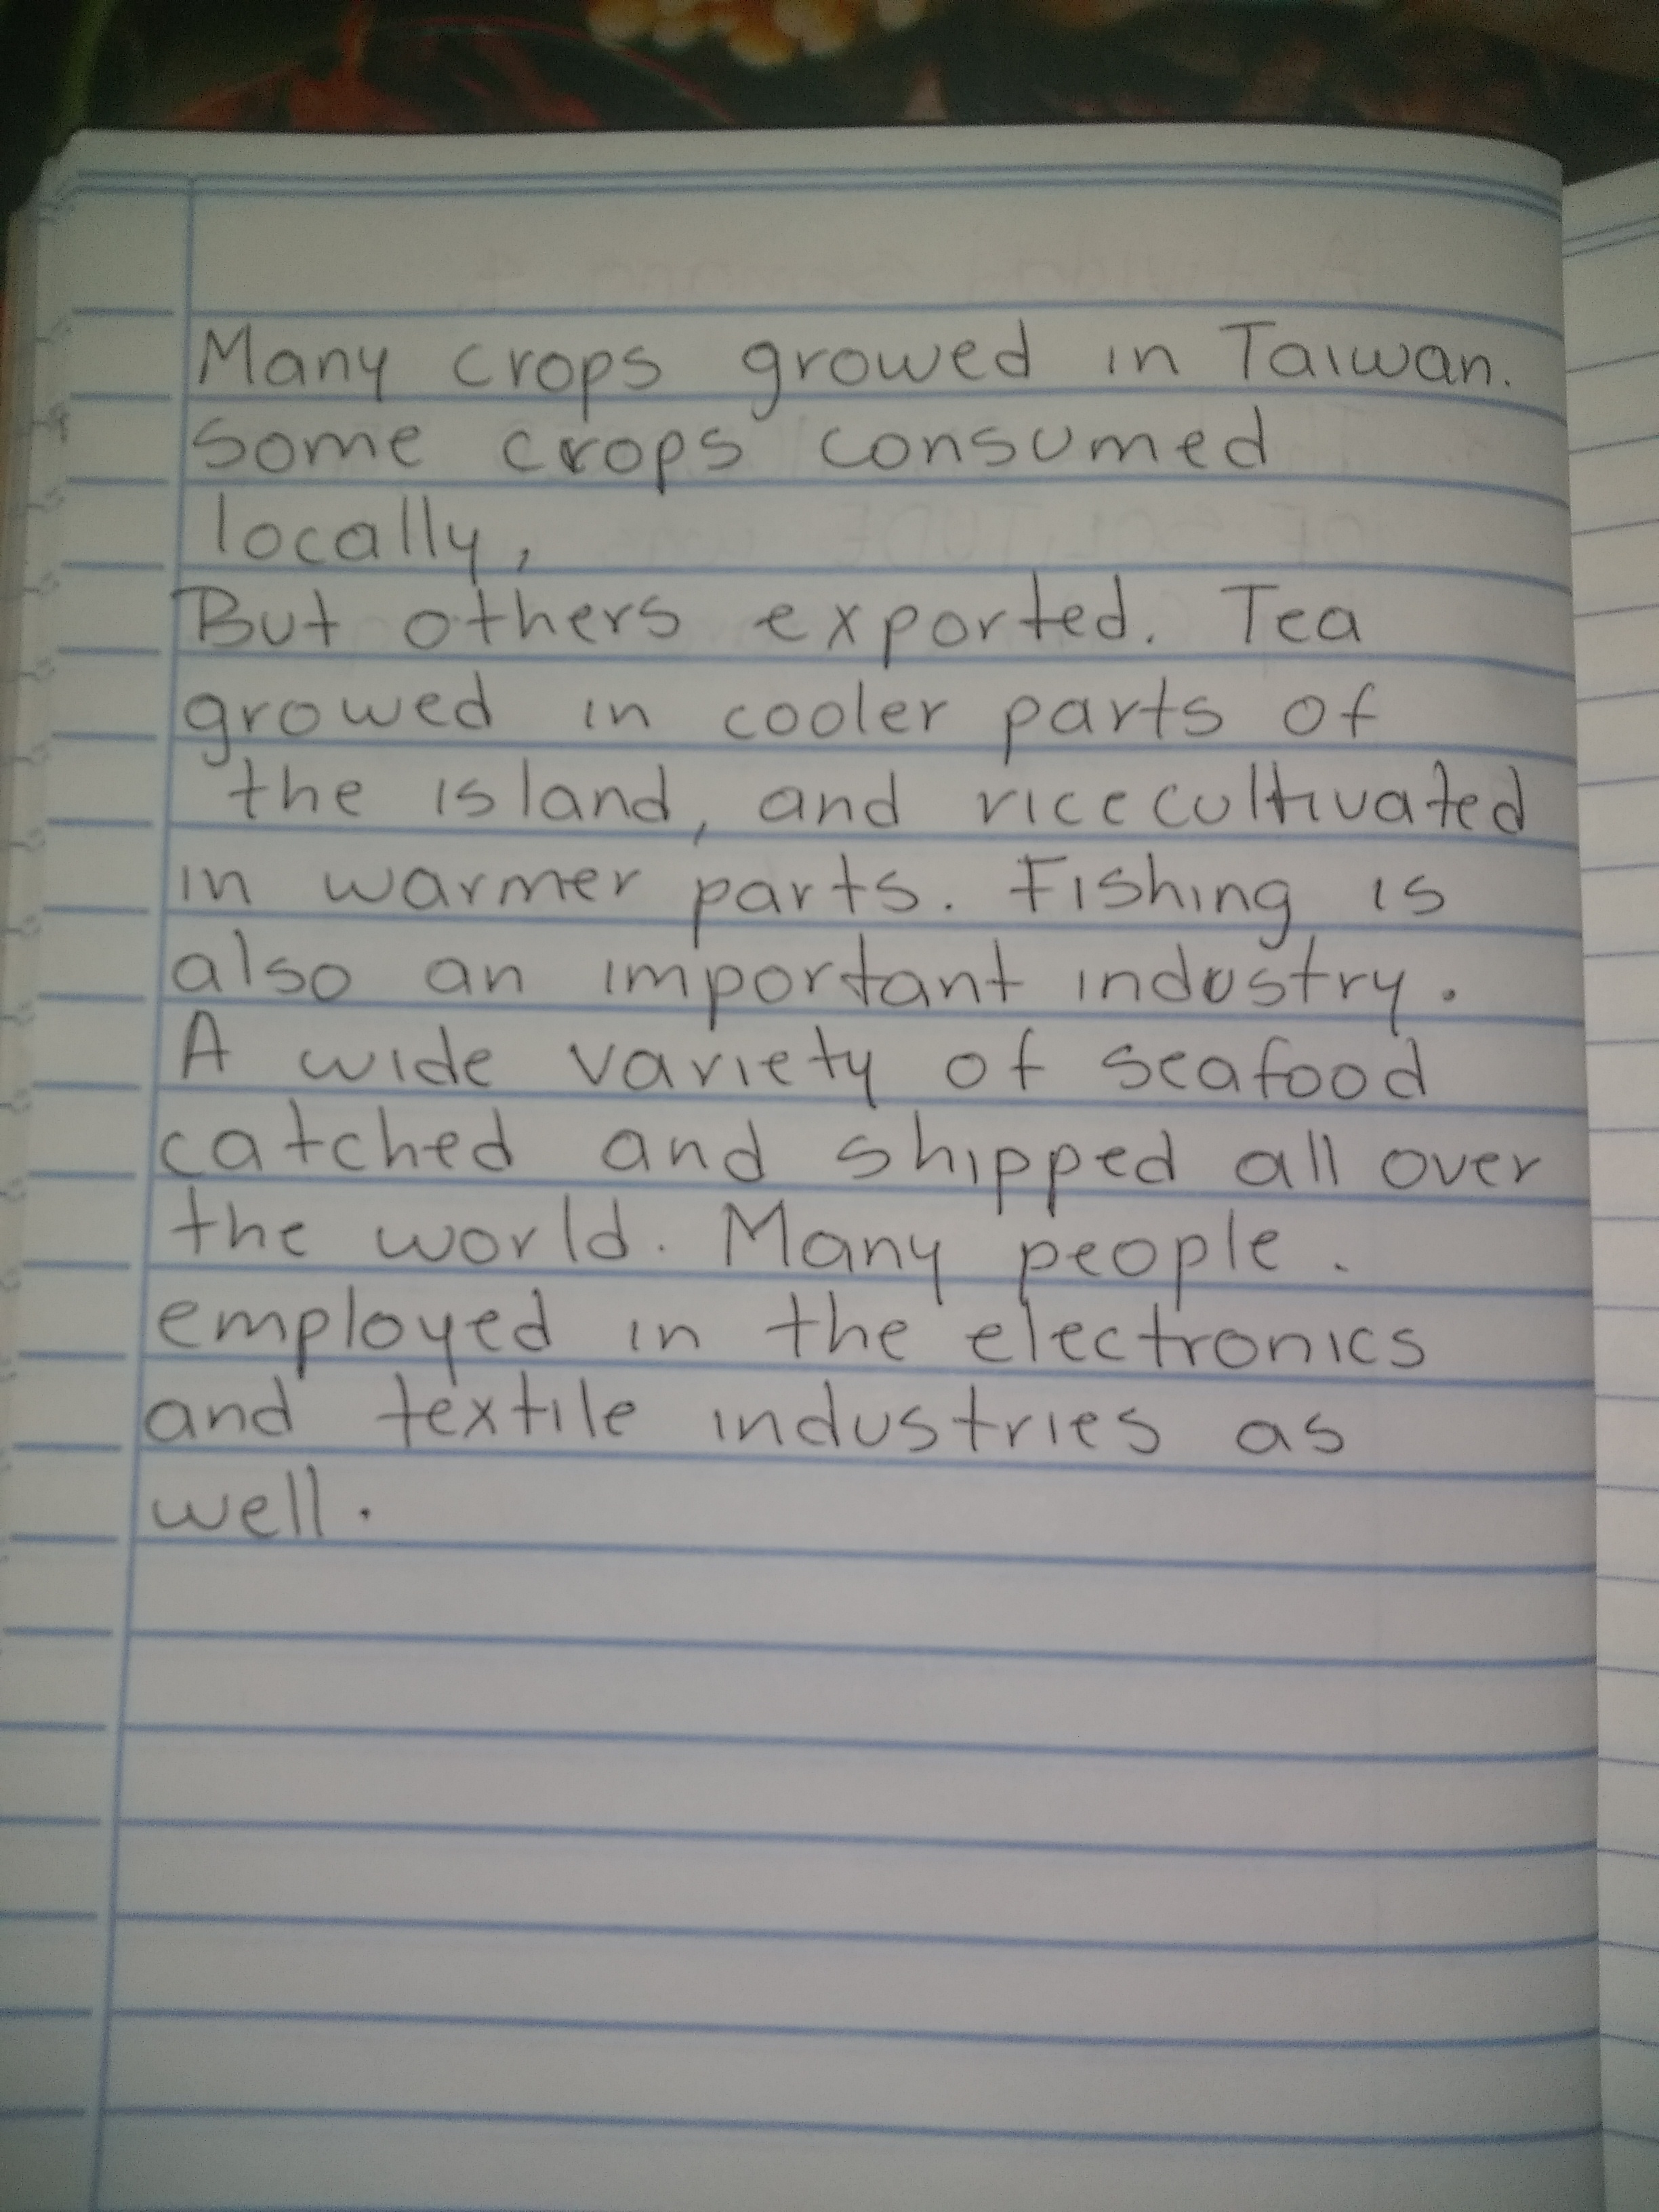 Many crops growed in Taiwan.
Some crops consumed
locally,
But others exported. Tea
growed in cooler parts of
the island, and rice cultivated
in warmer parts. Fishing is
also an important industry.
A wide variety of seafood
catched and shipped all over
the world. Many people.
employed in the electronics
and textile industries as
well.